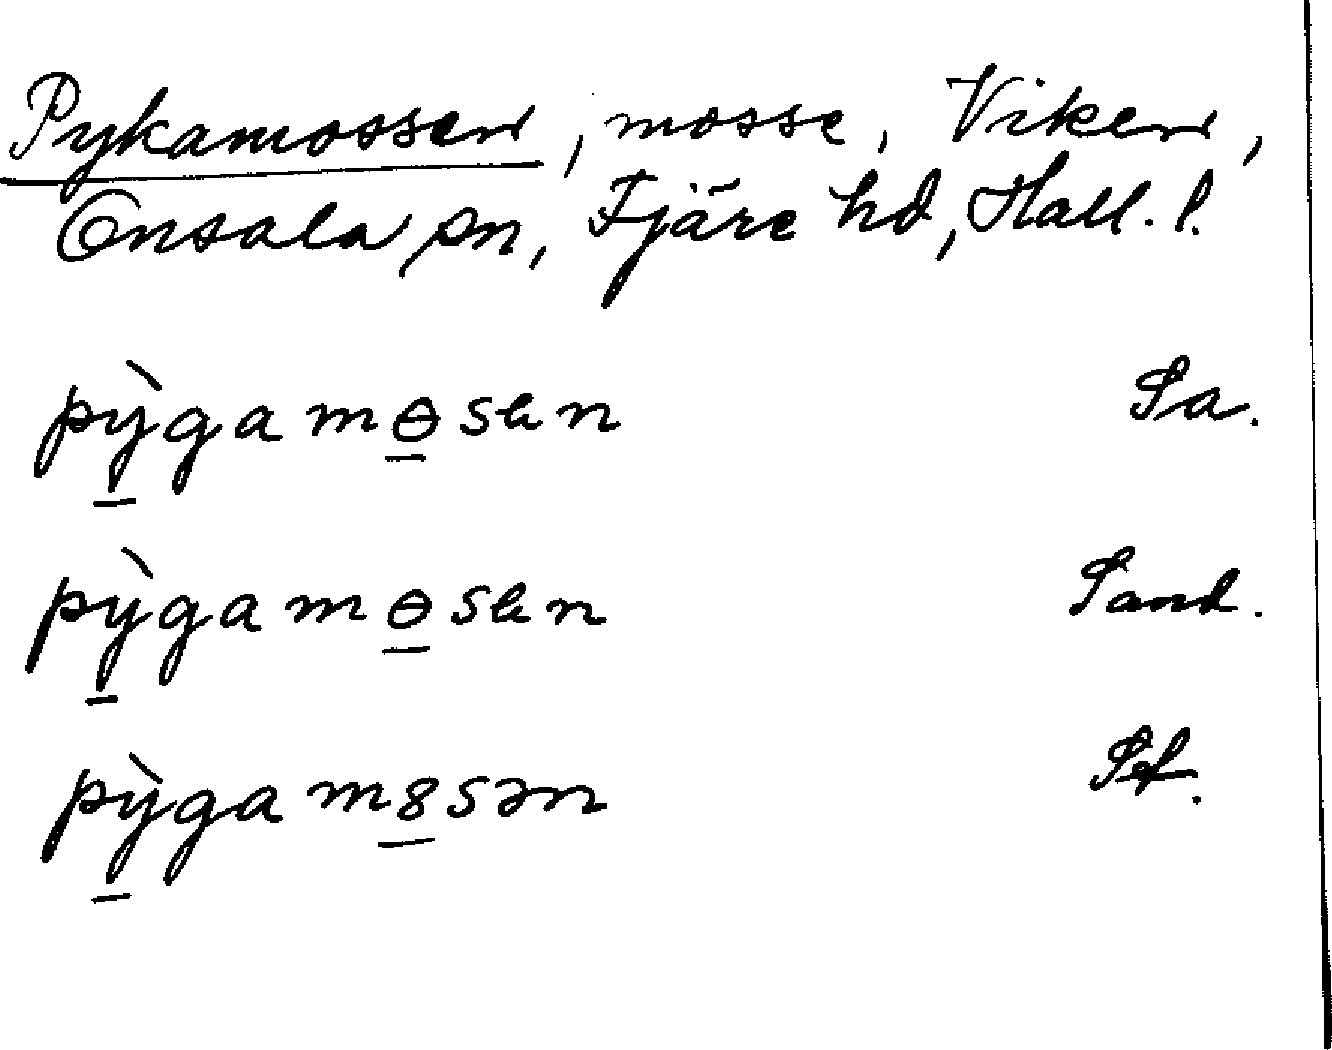 Pykamossen, mosse, Viken,
Onsala sn, Fjäre hd, Hall. l.
pỳ̱gamɵ̱sen Sa.
pỳ̱gamɵ̱sen Sand.
pỳ̱gam8̱sən Sef.